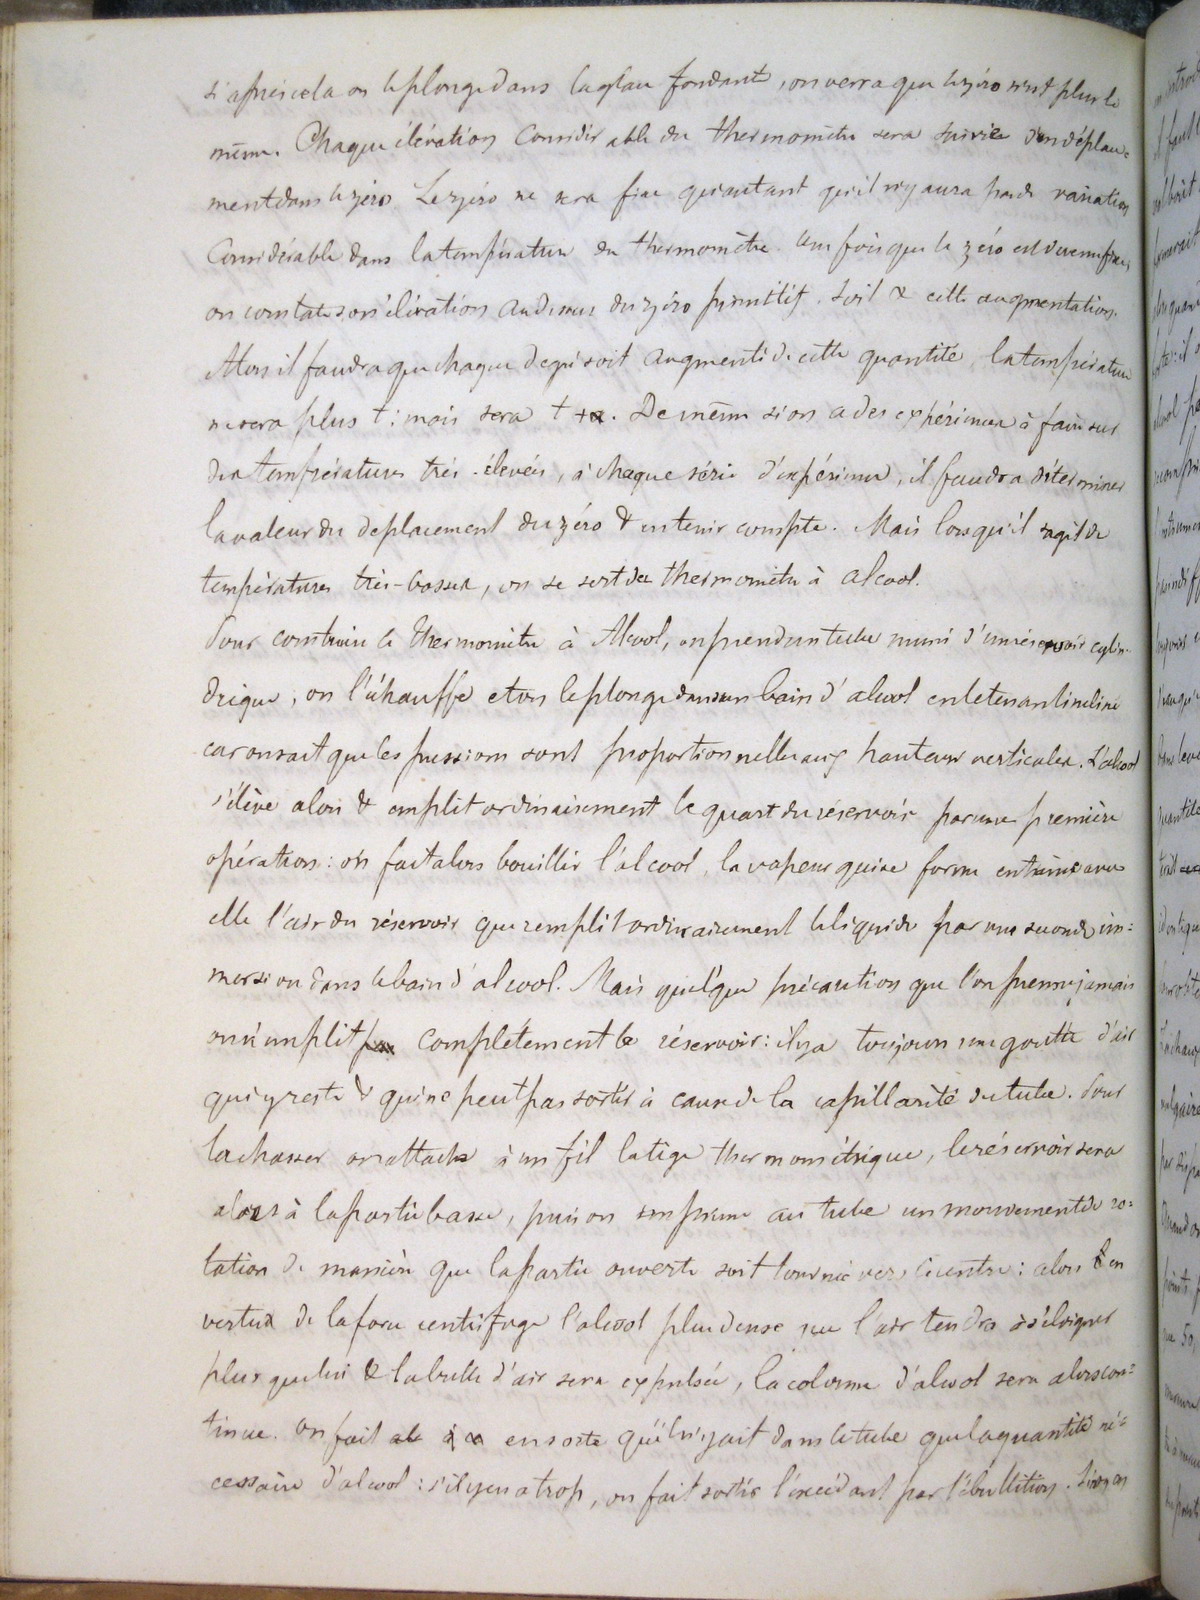 si après cela on le plonge dans la glace fondante, on verra que le zéro n'est plus le
même. Chaque élévation considérable du thermomètre sera suivie d'un déplace=
ment dans le zéro. Le zéro ne sera fixe qu'autant qu'il n'y aura pas de variation
considérable dans la température du thermomètre. Une fois que le zéro est devenu fixe,
on constate son élévation au dessus du zéro primitif. Soit α cette augmentation.
Alors il faudra que chaque degré soit augmenté de cette quantité, la température
ne sera plus t: mais sera t + α. De même si on a des expériences à faire sur
des températures très-élevées, à chaque série d'expérience, il faudra déterminer
la valeur du déplacement du zéro & en tenir compte. Mais lorsqu'il s'agit de
températures très-basses, on se sert de thermomètre à alcool.
Pour construire le thermomètre à Alcool, on prend un tube muni d'un réservoir cylin-
drique; on l'échauffe et on le plonge dans un bain d'alcool en le tenant incliné
car on sait que les pressions sont proportionnelles aux hauteurs verticales. L'alcool
s'élève alors & emplit ordinairement le quart du réservoir par une première
opération: on fait alors bouillir l'alcool, la vapeur qui se forme entraîne avec
elle l'air du réservoir que remplit ordinairement le liquide par une seconde im=
mersion dans le bain d'alcool. Mais quelque précaution que l'on prenne, jamais
on n'emplit pas complétement le réservoir: il y a toujours une goutte d'air
qui y reste & qui ne peut pas sortir à cause de la capillarité du tube. Pour
la chasser on attache à un fil la tige thermométrique, le réservoir sera
alors à la partie basse, puis on imprime au tube un mouvement de ro=
tation de manière que la partie ouverte soit tournée vers le centre: alors & en
vertu de la force centrifuge l'alcool plus dense que l'air tendra à s'éloigner
plus que lui & la bulle d'air sera expulsée, la colonne d'alcool sera alors con=
tinue. On fait en sorte qu'il n'y ait dans le tube que la quantité né=
cessaire d'alcool: s'il y en a trop, on fait sortir l'excédant par l'ébullition. Sinon